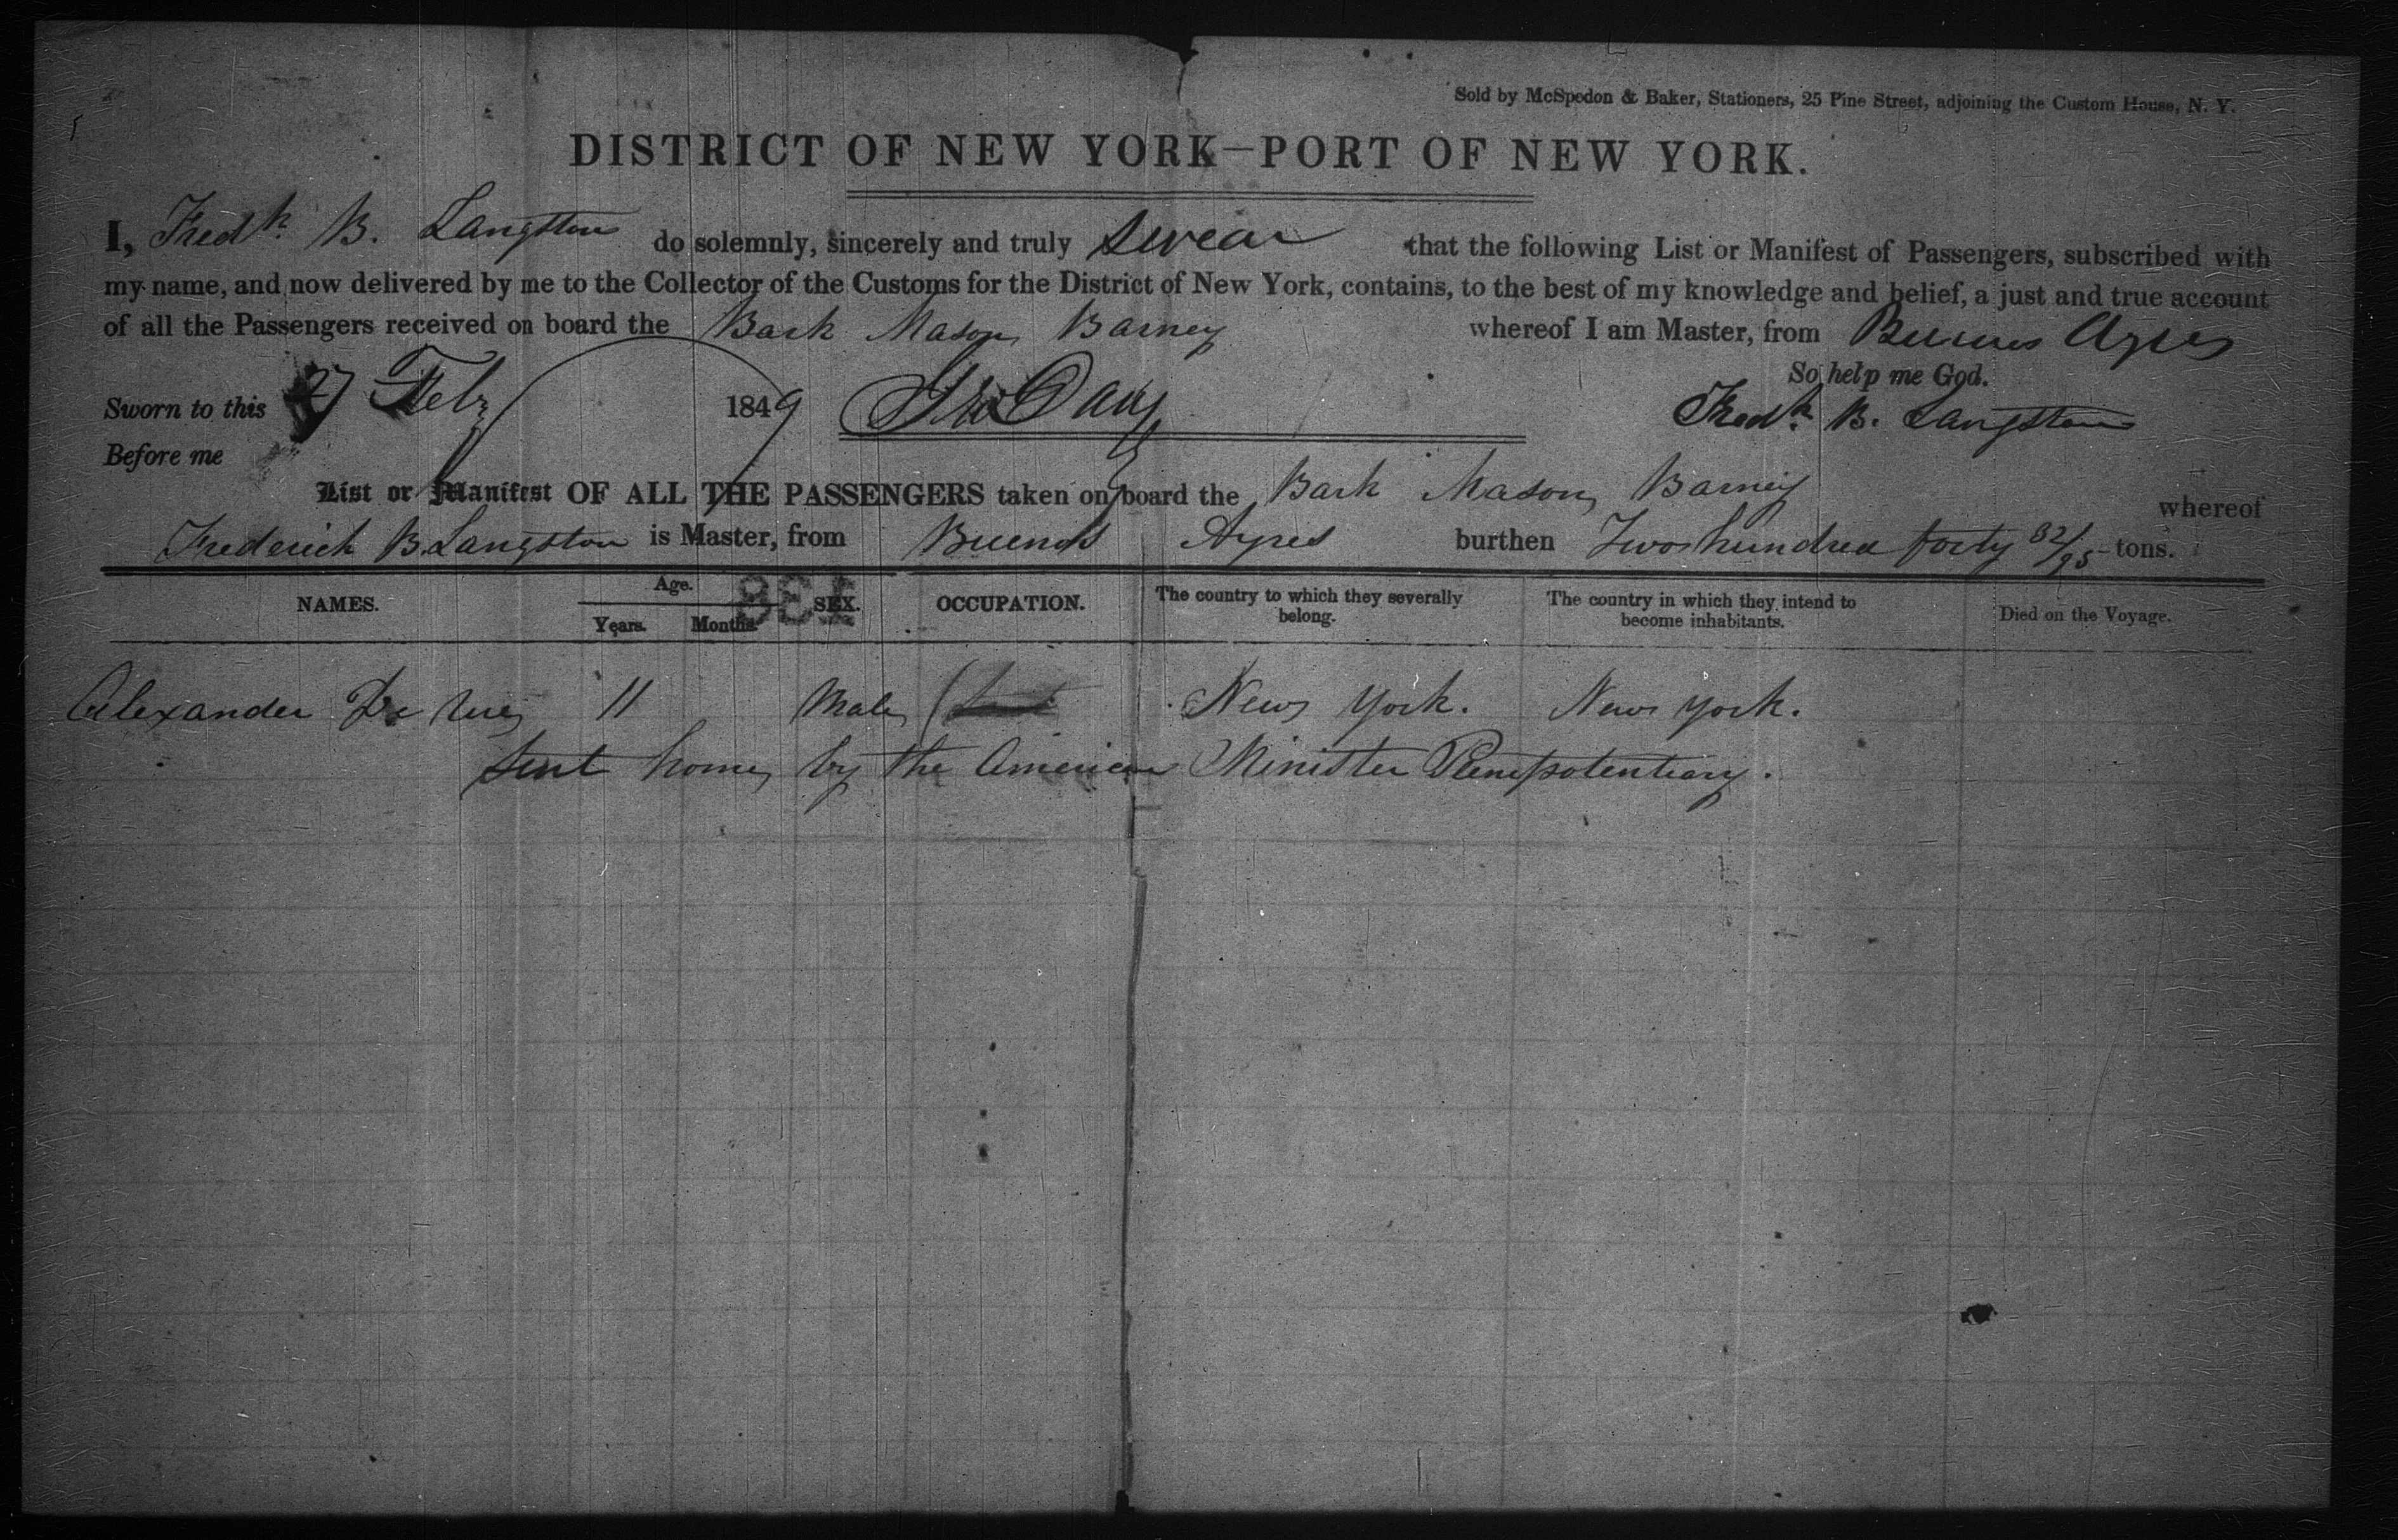 Sold by McSpedon & Baker, Stationers, 25 Pine Street, adjoining the Custom House, N. Y.
DISTRICT OF NEW YORK—PORT OF NEW YORK.
I, Fredk. B. Langston do solemnly, sincerely and truly swear that the following List or Manifest of Passengers, subscribed with
my name, and now delivered by me to the Collector of the Customs for the District of New York, contains, to the best of my knowledge and belief, a just and true account
of all the Passengers received on board the Bark Mason Barney whereof I am Master, from Buenos Ayres
So help me God.
Sworn to this 27 Feby 1849 Fredk. B. Langston
Before me
List or Manifest OF ALL THE PASSENGERS taken on board the Bark Mason Barney whereof
Frederick B. Langston is Master, from Buenos Ayres burthen Two hundred forty 82/95 tons.
NAMES. Age. Years. Months. SEX. OCCUPATION. The country to which they severally belong. The country in which they intend to become inhabitants. Died on the Voyage.
Alexander De 11 Male New York. New York.
Sent home by the American Minister Plenipotentiary.